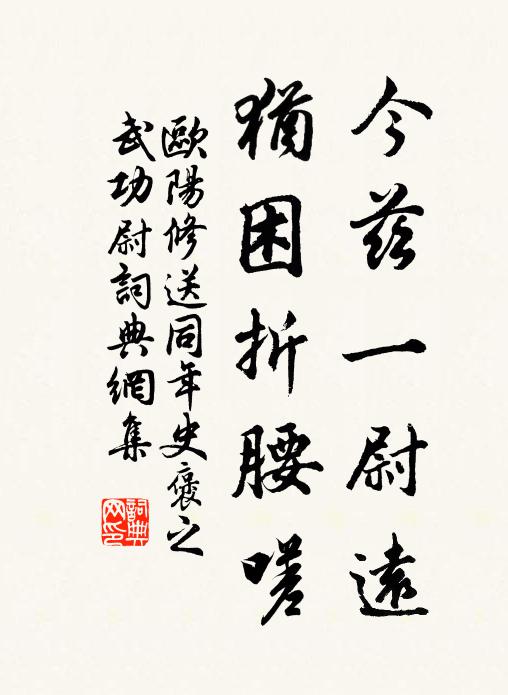 今茲一尉遠
猶困折腰嗟
歐陽修送同年史褒之
武功尉詞典網集
詞典网印